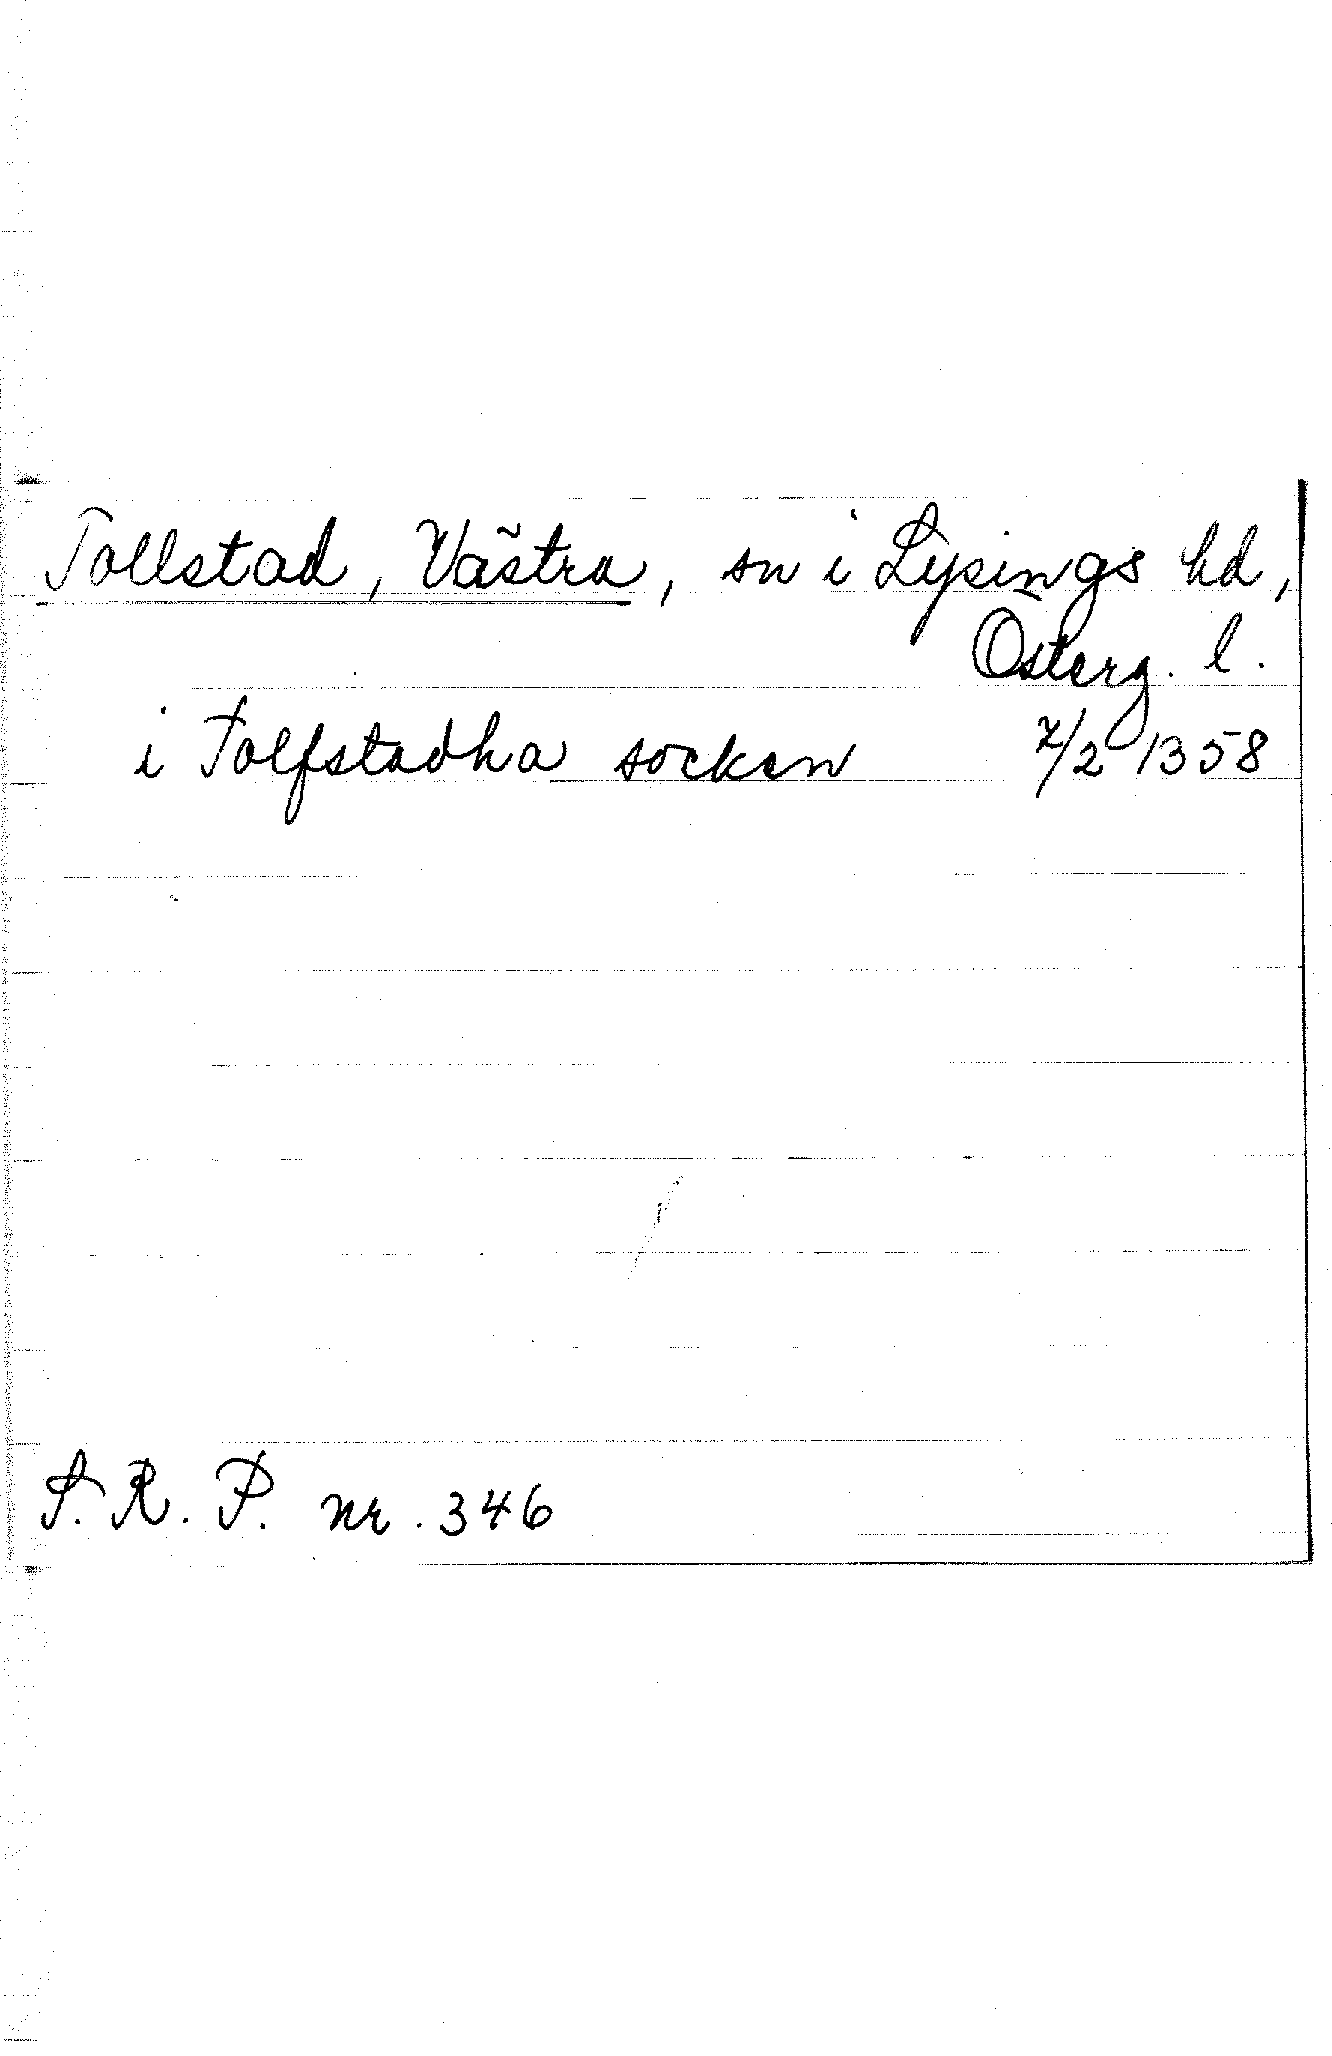 Tollstad, Västra, sn i Lysings hd,
Österg. l.
i Tolfstadha socken 7/2 1358
S. R. P. nr. 346